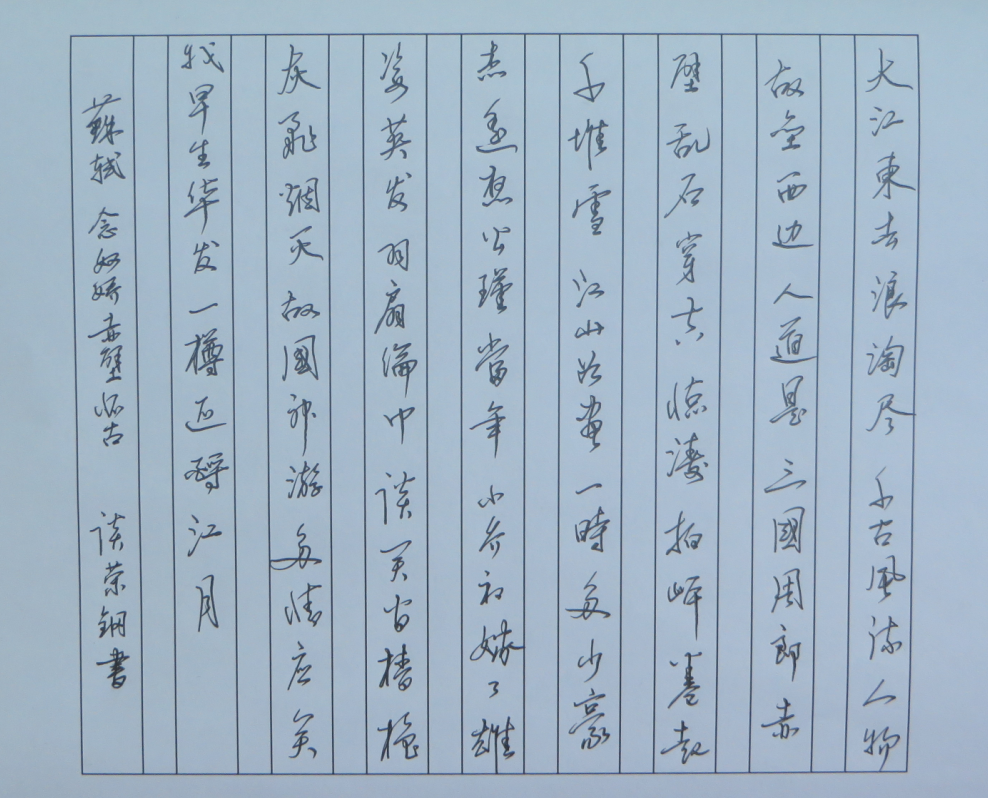 大江東去浪淘尽 千古風流人物
故垒西边 人道是 三國周郎赤
壁乱石穿空 惊濤拍岸 卷起
千堆雪 江山如畫一時多少豪
杰遥想公瑾當年 小乔初嫁了雄
姿英发 羽扇綸巾 谈笑间樯櫓
灰飛烟灭 故國神游多情应笑
我早生华发一樽还酹江月
蘇轼 念奴娇赤壁怀古 谈荣鋼書